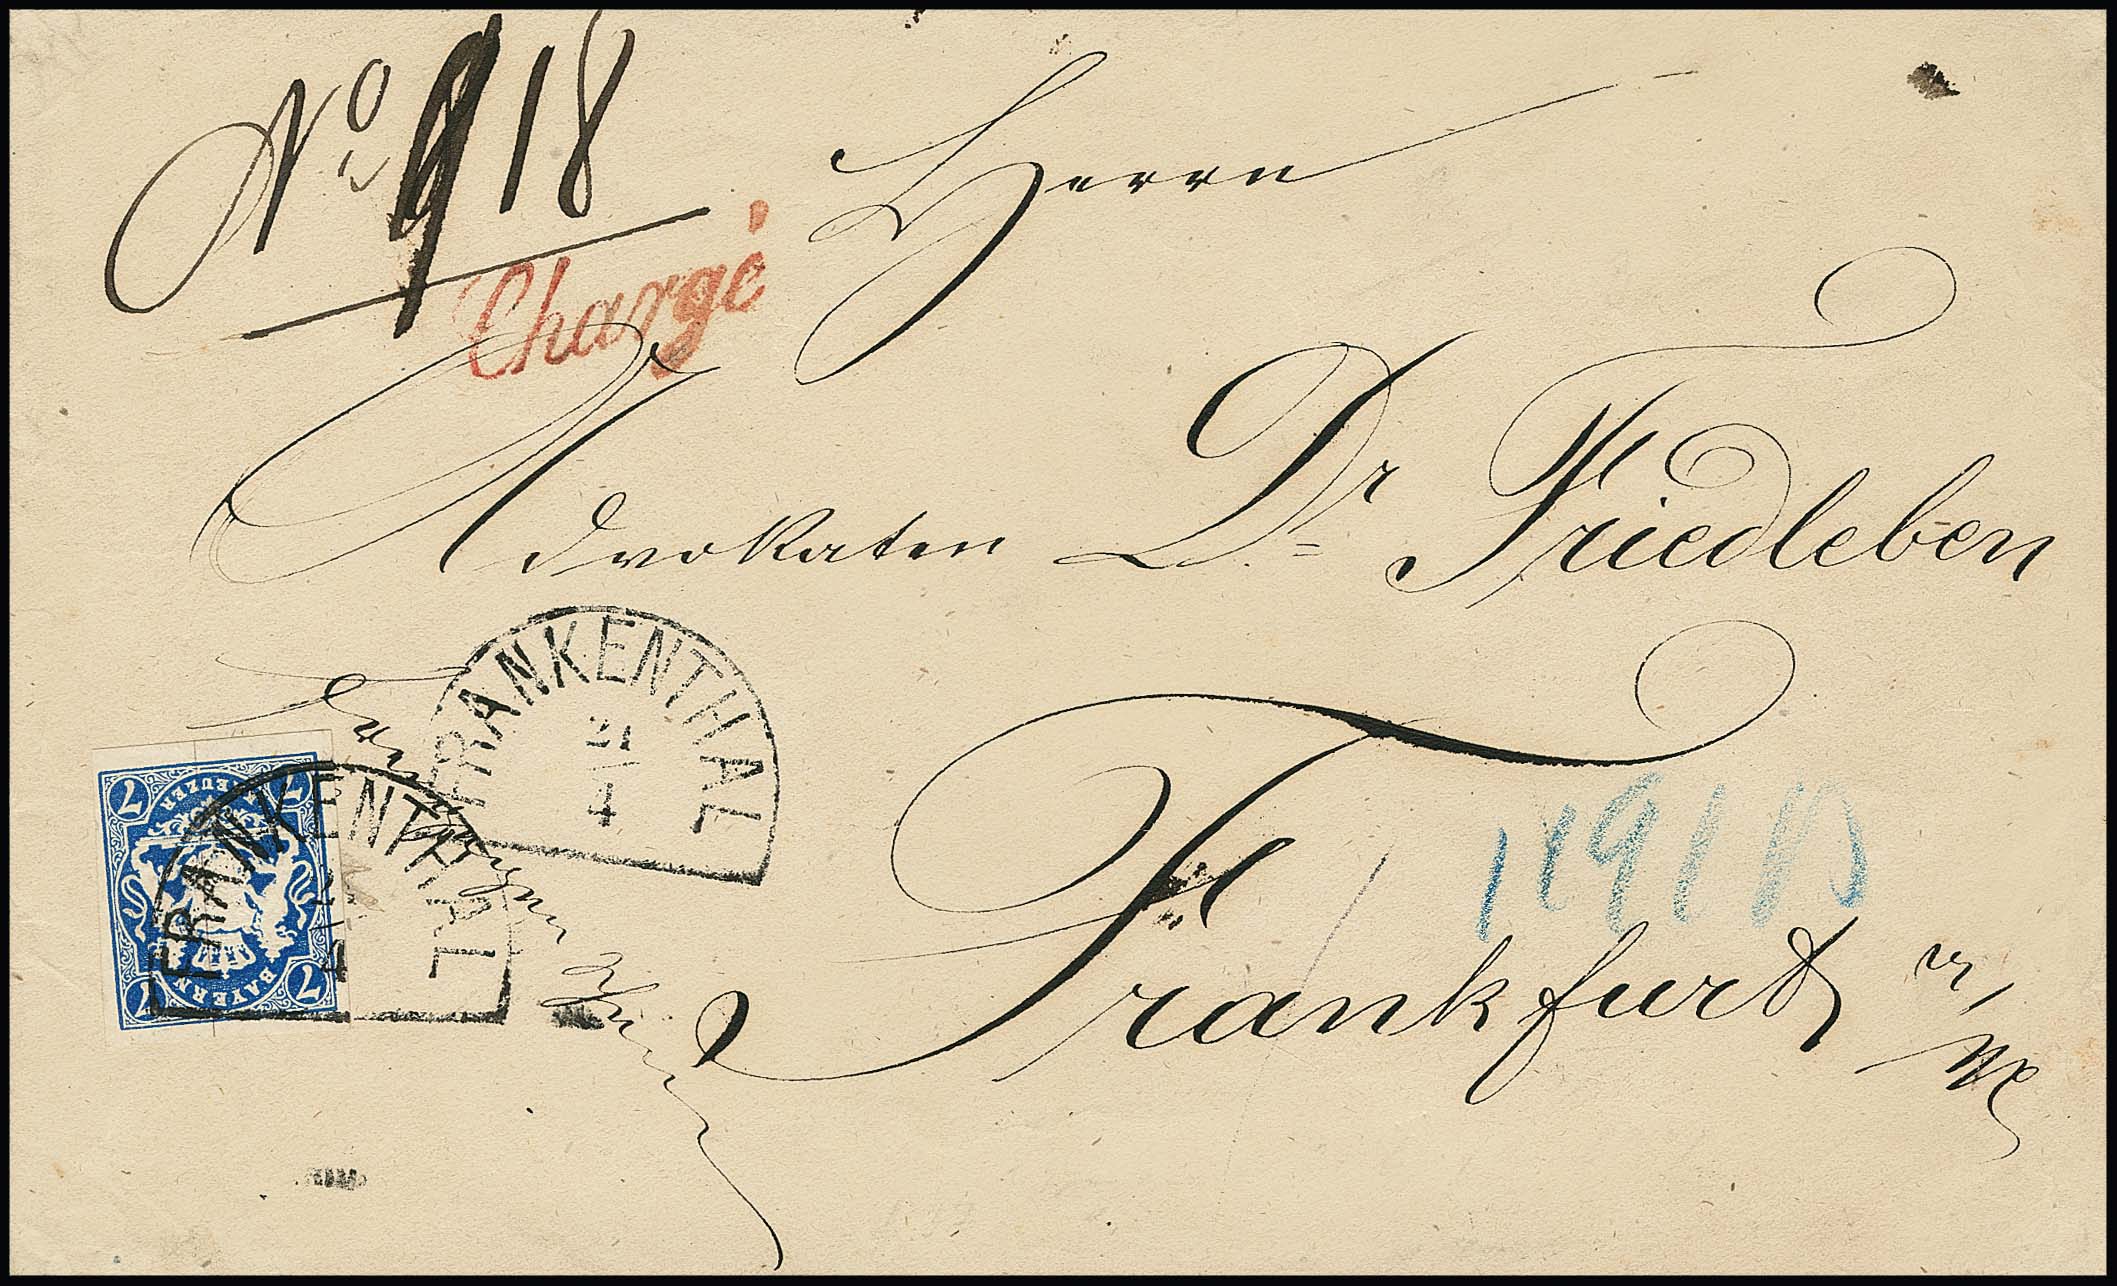 No 918
Chargé
Herrn
Advokaten Dr Friedleben
Frankfurt a/M
FRANKENTHAL
21
4
FRANKENTHAL
21
4
7 KREUZER 7
7 BAYERN 7